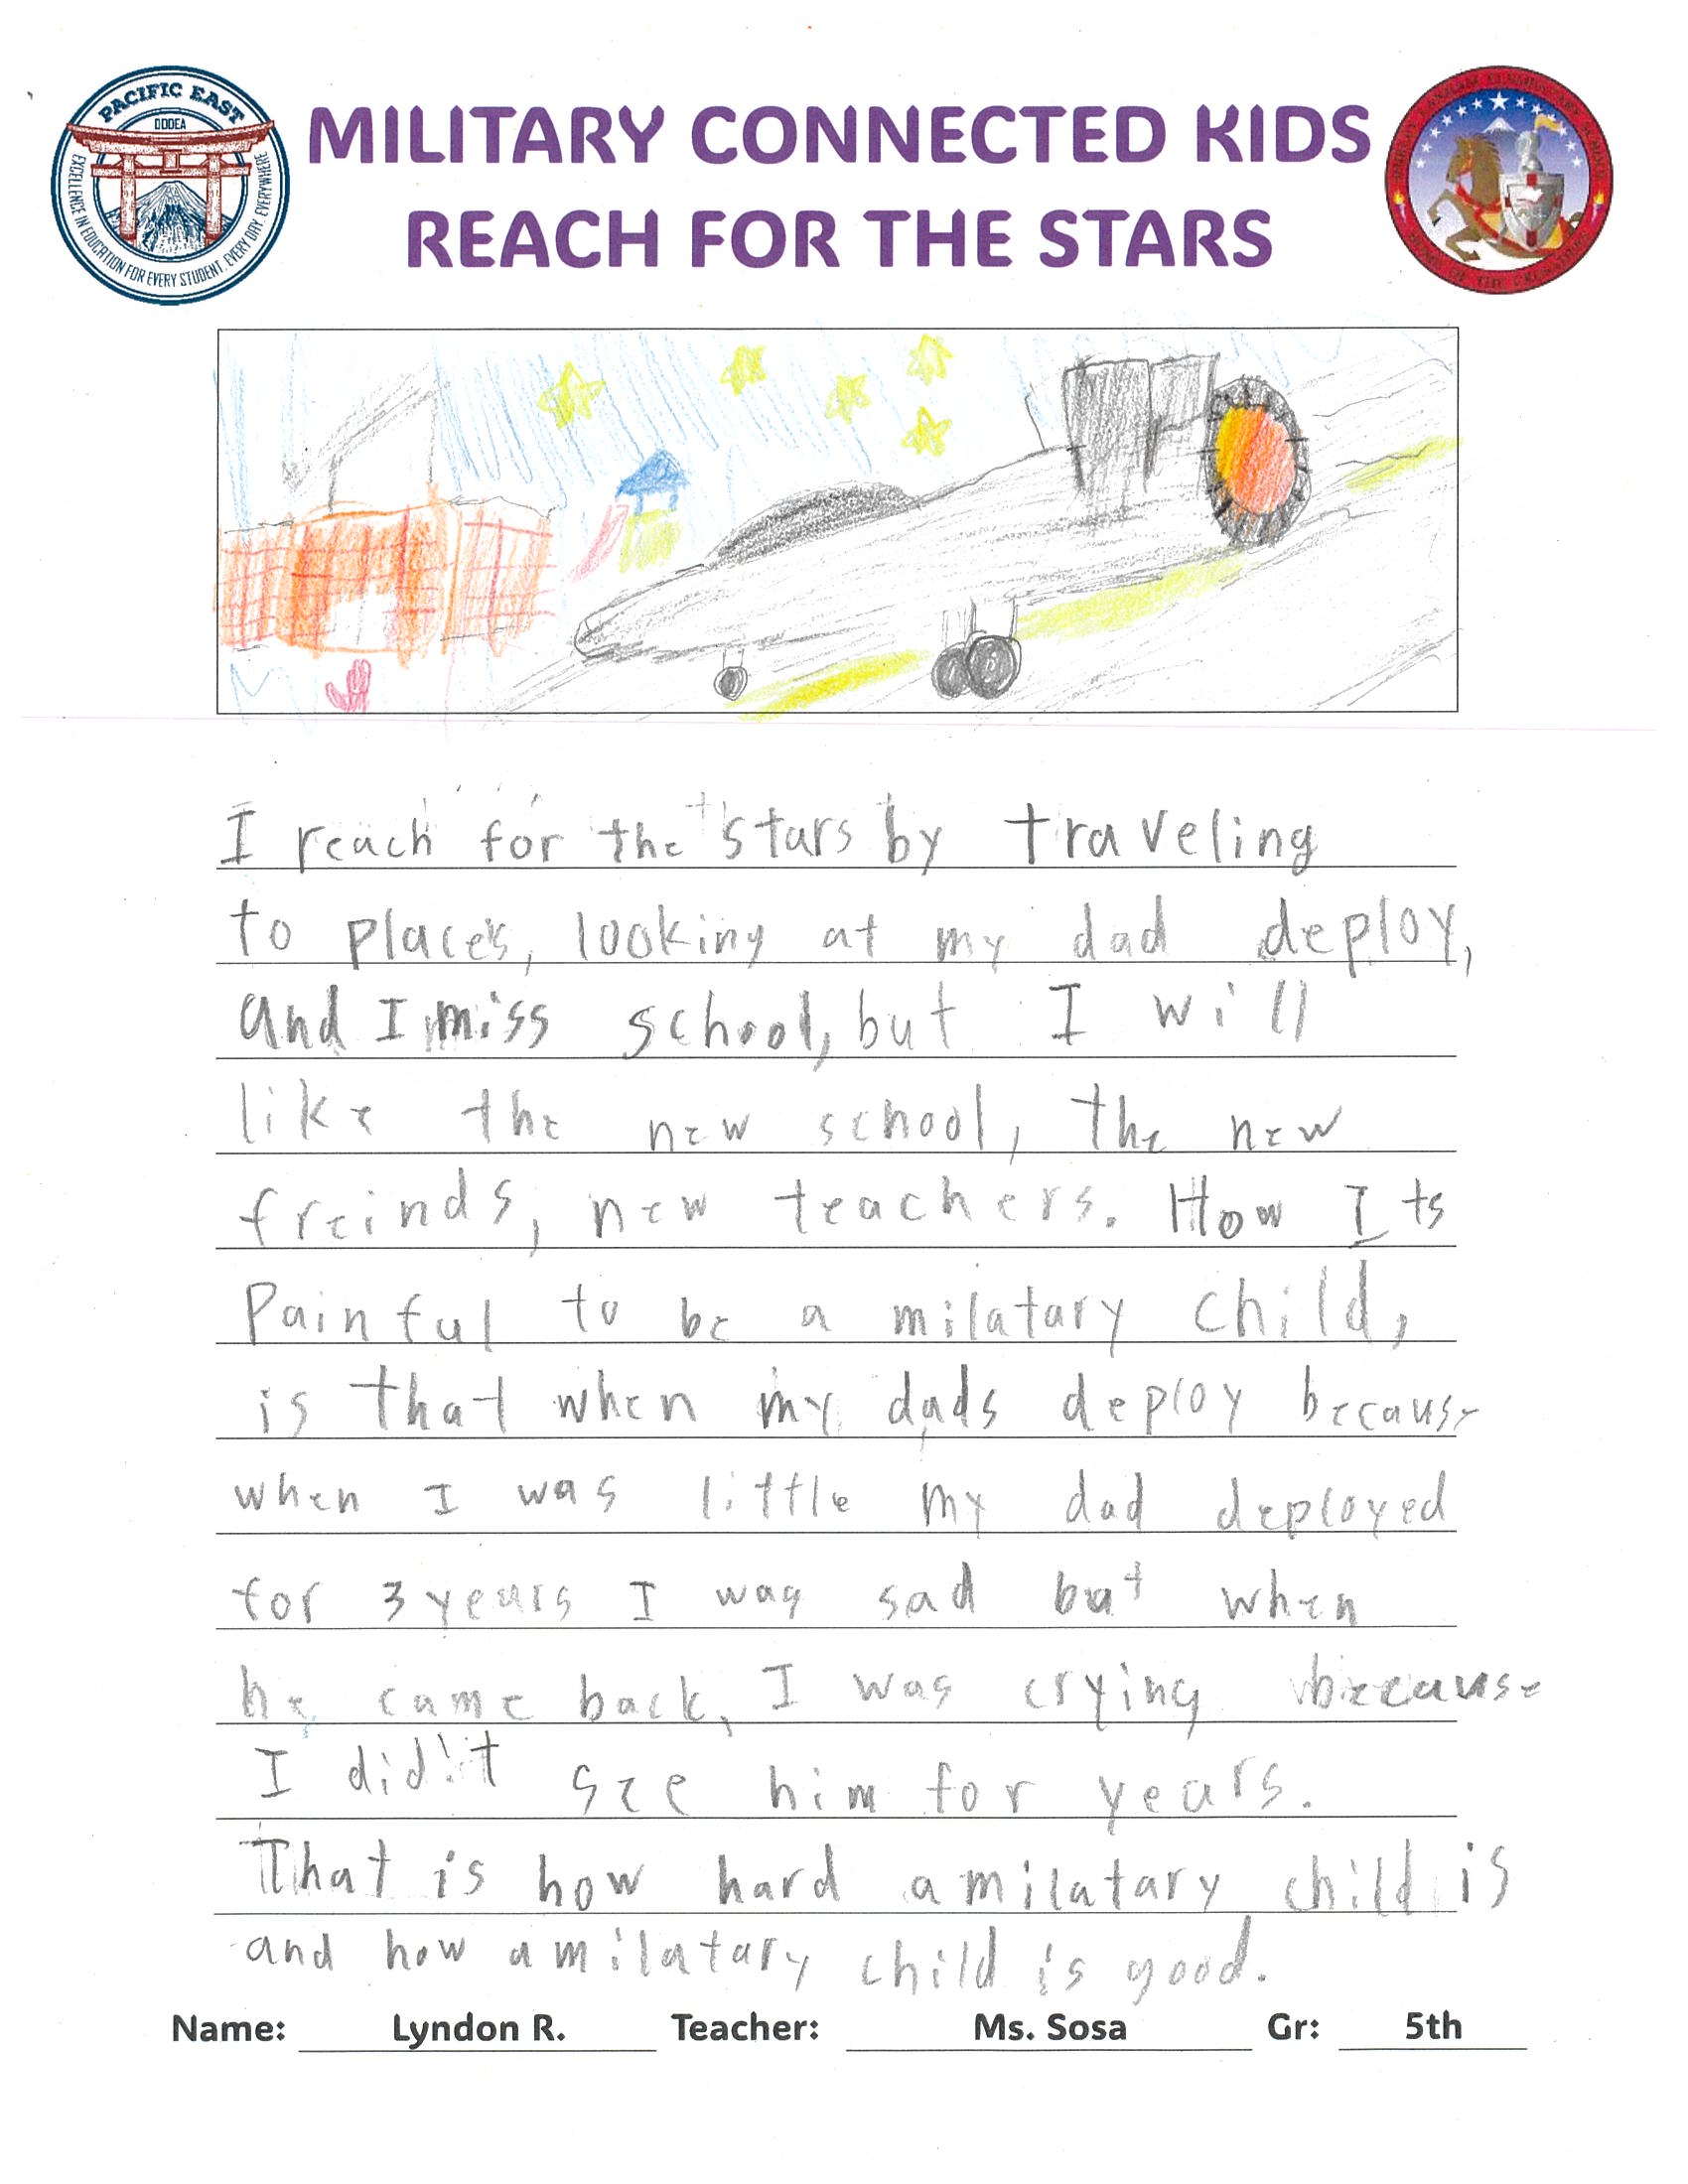 PACIFIC EAST
DODEA
EXCELLENCE IN EDUCATION FOR EVERY STUDENT, EVERY DAY, EVERYWHERE
MILITARY CONNECTED KIDS
REACH FOR THE STARS
I reach for the stars by traveling
to places, looking at my dad deploy,
and I miss school, but I will
like the new school, the new
freinds, new teachers. How Its
Painful to be a milatary child,
is that when my dads deploy because
when I was little my dad deployed
for 3 years I was sad but when
he came back, I was crying because
I did't see him for years.
That is how hard a milatary child is
and how a milatary child is good.
Name: Lyndon R. Teacher: Ms. Sosa Gr: 5th